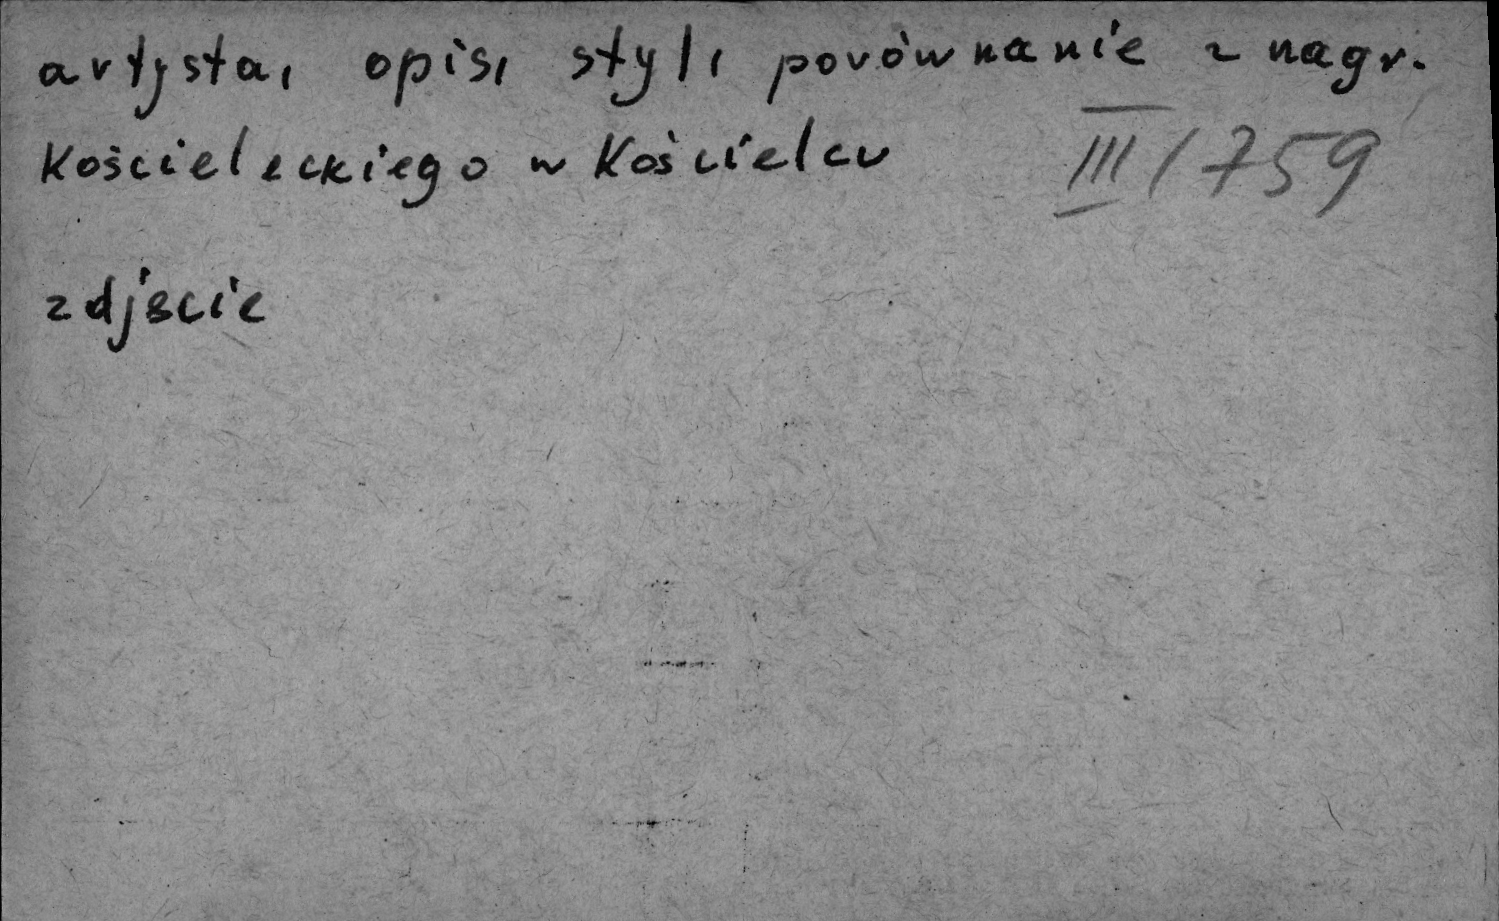 artysta, opis, styl, porównanie z nagr.
Kościeleckiego w Kościelcu
III/759
zdjęcie